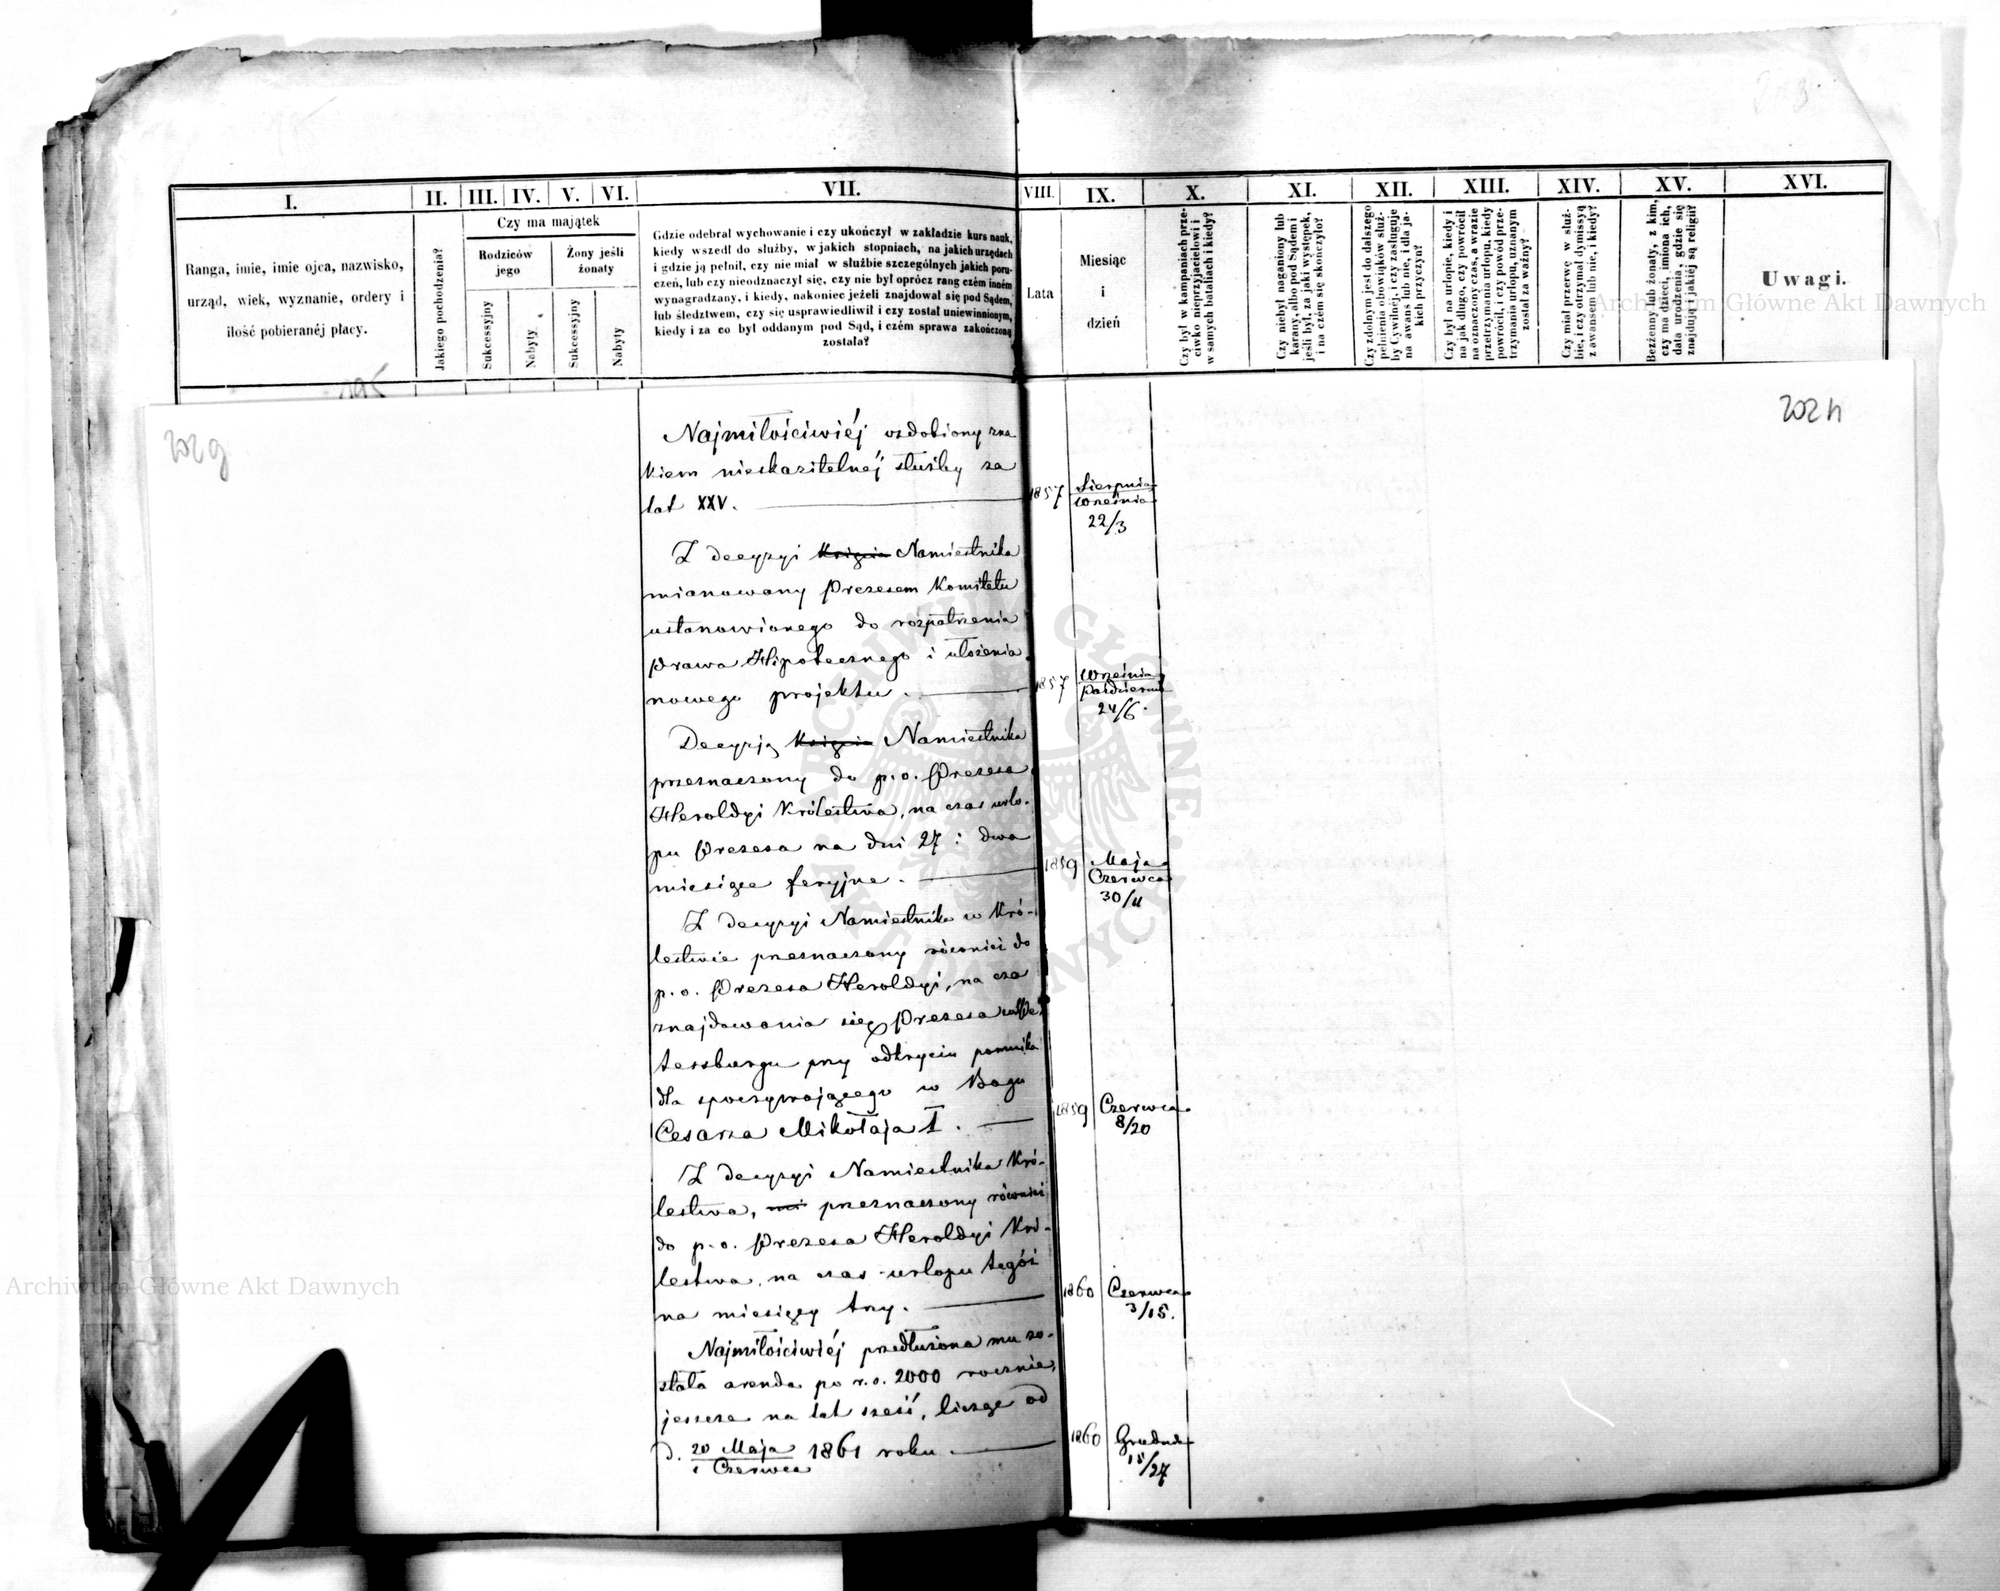 202g
202h
195
I. II. III. IV. V. VI. VII. VIII. IX. X. XI. XII. XIII. XIV. XV. XVI.
Ranga, imie, imie ojca, nazwisko,
urząd, wiek, wyznanie, ordery i
ilość pobieranéj płacy.
Jakiego pochodzenia?
Czy ma majątek
Rodziców
jego
Żony jeśli
żonaty
Sukcessyjny
Nabyty
Sukcessyjny
Nabyty
Gdzie odebrał wychowanie i czy ukończył w zakładzie kurs nauk,
kiedy wszedł do służby, w jakich stopniach, na jakich urzędach
i gdzie ją pełnił, czy nie miał w służbie szczególnych jakich poru-
czeń, lub czy nieodznaczył się, czy nie był oprócz rang czém inném
wynagradzany, i kiedy, nakoniec jeżeli znajdował się pod Sądem,
lub śledztwem, czy się usprawiedliwił i czy został uniewinnionym,
kiedy i za co był oddanym pod Sąd, i czém sprawa zakończoną
została?
Lata
Miesiąc
i
dzień
Czy był w kampaniach prze-
ciwko nieprzyjacielowi i
w samych bataliach i kiedy?
Czy niebył naganiony lub
karany, albo pod Sądem i
jeśli był, za jaki występek,
i na czém się skończyło?
Czy zdolnym jest do dalszego
pełnienia obowiąków służ-
by Cywilnéj, i czy zasługuje
na awans lub nie, i dla ja-
kich przyczyn?
Czy był na urlopie, kiedy i
na jak długo, czy powrócił
na oznaczony czas, a wrazie
przetrzymania urlopu, kiedy
powrócił, i czy powód prze-
trzymania urlopu, uznanym
został za ważny?
Czy miał przerwę w służ-
bie, i czy otrzymał dymissyą
z awansem lub nie, i kiedy?
Bezżenny lub żonaty, z kim,
czy ma dzieci, imiona ich,
data urodzenia, gdzie się
znajdują i jakiéj są religii?
Uwagi.
Archiwum Główne Akt Dawnych
Najmiłościwiéj ozdobiony zna
kiem nieskazitelnéj służby za
lat XXV.
1857 Sierpnia
Września
22/3
Z decyzyi Księcia Namiestnika
mianowany Prezesem Komitetu
ustanowionego do rozpatrzenia
prawa Hipotecznego i ułożenia
nowego projektu.
1857 Września
Październ
24/6.
Decyzją Księcia Namiestnika
przeznaczony do p.o. Prezesa
Heroldyi Królestwa, na czas urlo-
pu Prezesa na dni 27 i dwa
miesiące feryjne.
1859 Maja
Czerwca
30/11
Z decyzyi Namiestnika w Kró-
lestwie przeznaczony również do
p.o. Prezesa Heroldyi, na cza
znajdowania się Prezesa w Pe
tersburgu przy odkryciu pomnika
dla spoczywającego w Bogu
Cesarza Mikołaja I.
1859 Czerwca
8/20
Z decyzyi Namiestnika Kró-
lestwa, przeznaczony również
do p.o. Prezesa Heroldyi Kró-
lestwa, na czas urlopu tegóż
na miesięcy trzy.
1860 Czerwca
3/15.
Najmiłościwiéj przedłużona mu zo-
stała arenda po r.s. 2000 rocznie,
jeszcze na lat sześć, licząc od
d. 20 Maja 1861 roku.
1 Czerwca
1860 Grudnia
15/27
Archiwum Główne Akt Dawnych
ARCHIWUM GŁÓWNE AKT DAWNYCH